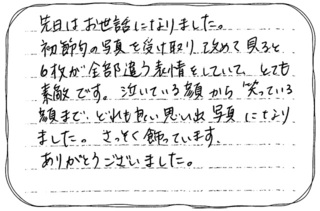 先日はお世話になりました。
初節句の写真を受け取り改めて見ると
6枚が全部違う表情をしていて、とても
素敵です。泣いている顔から笑っている
顔まで、どれも良い思い出写真になり
ました。さっそく飾っています。
ありがとうございました。